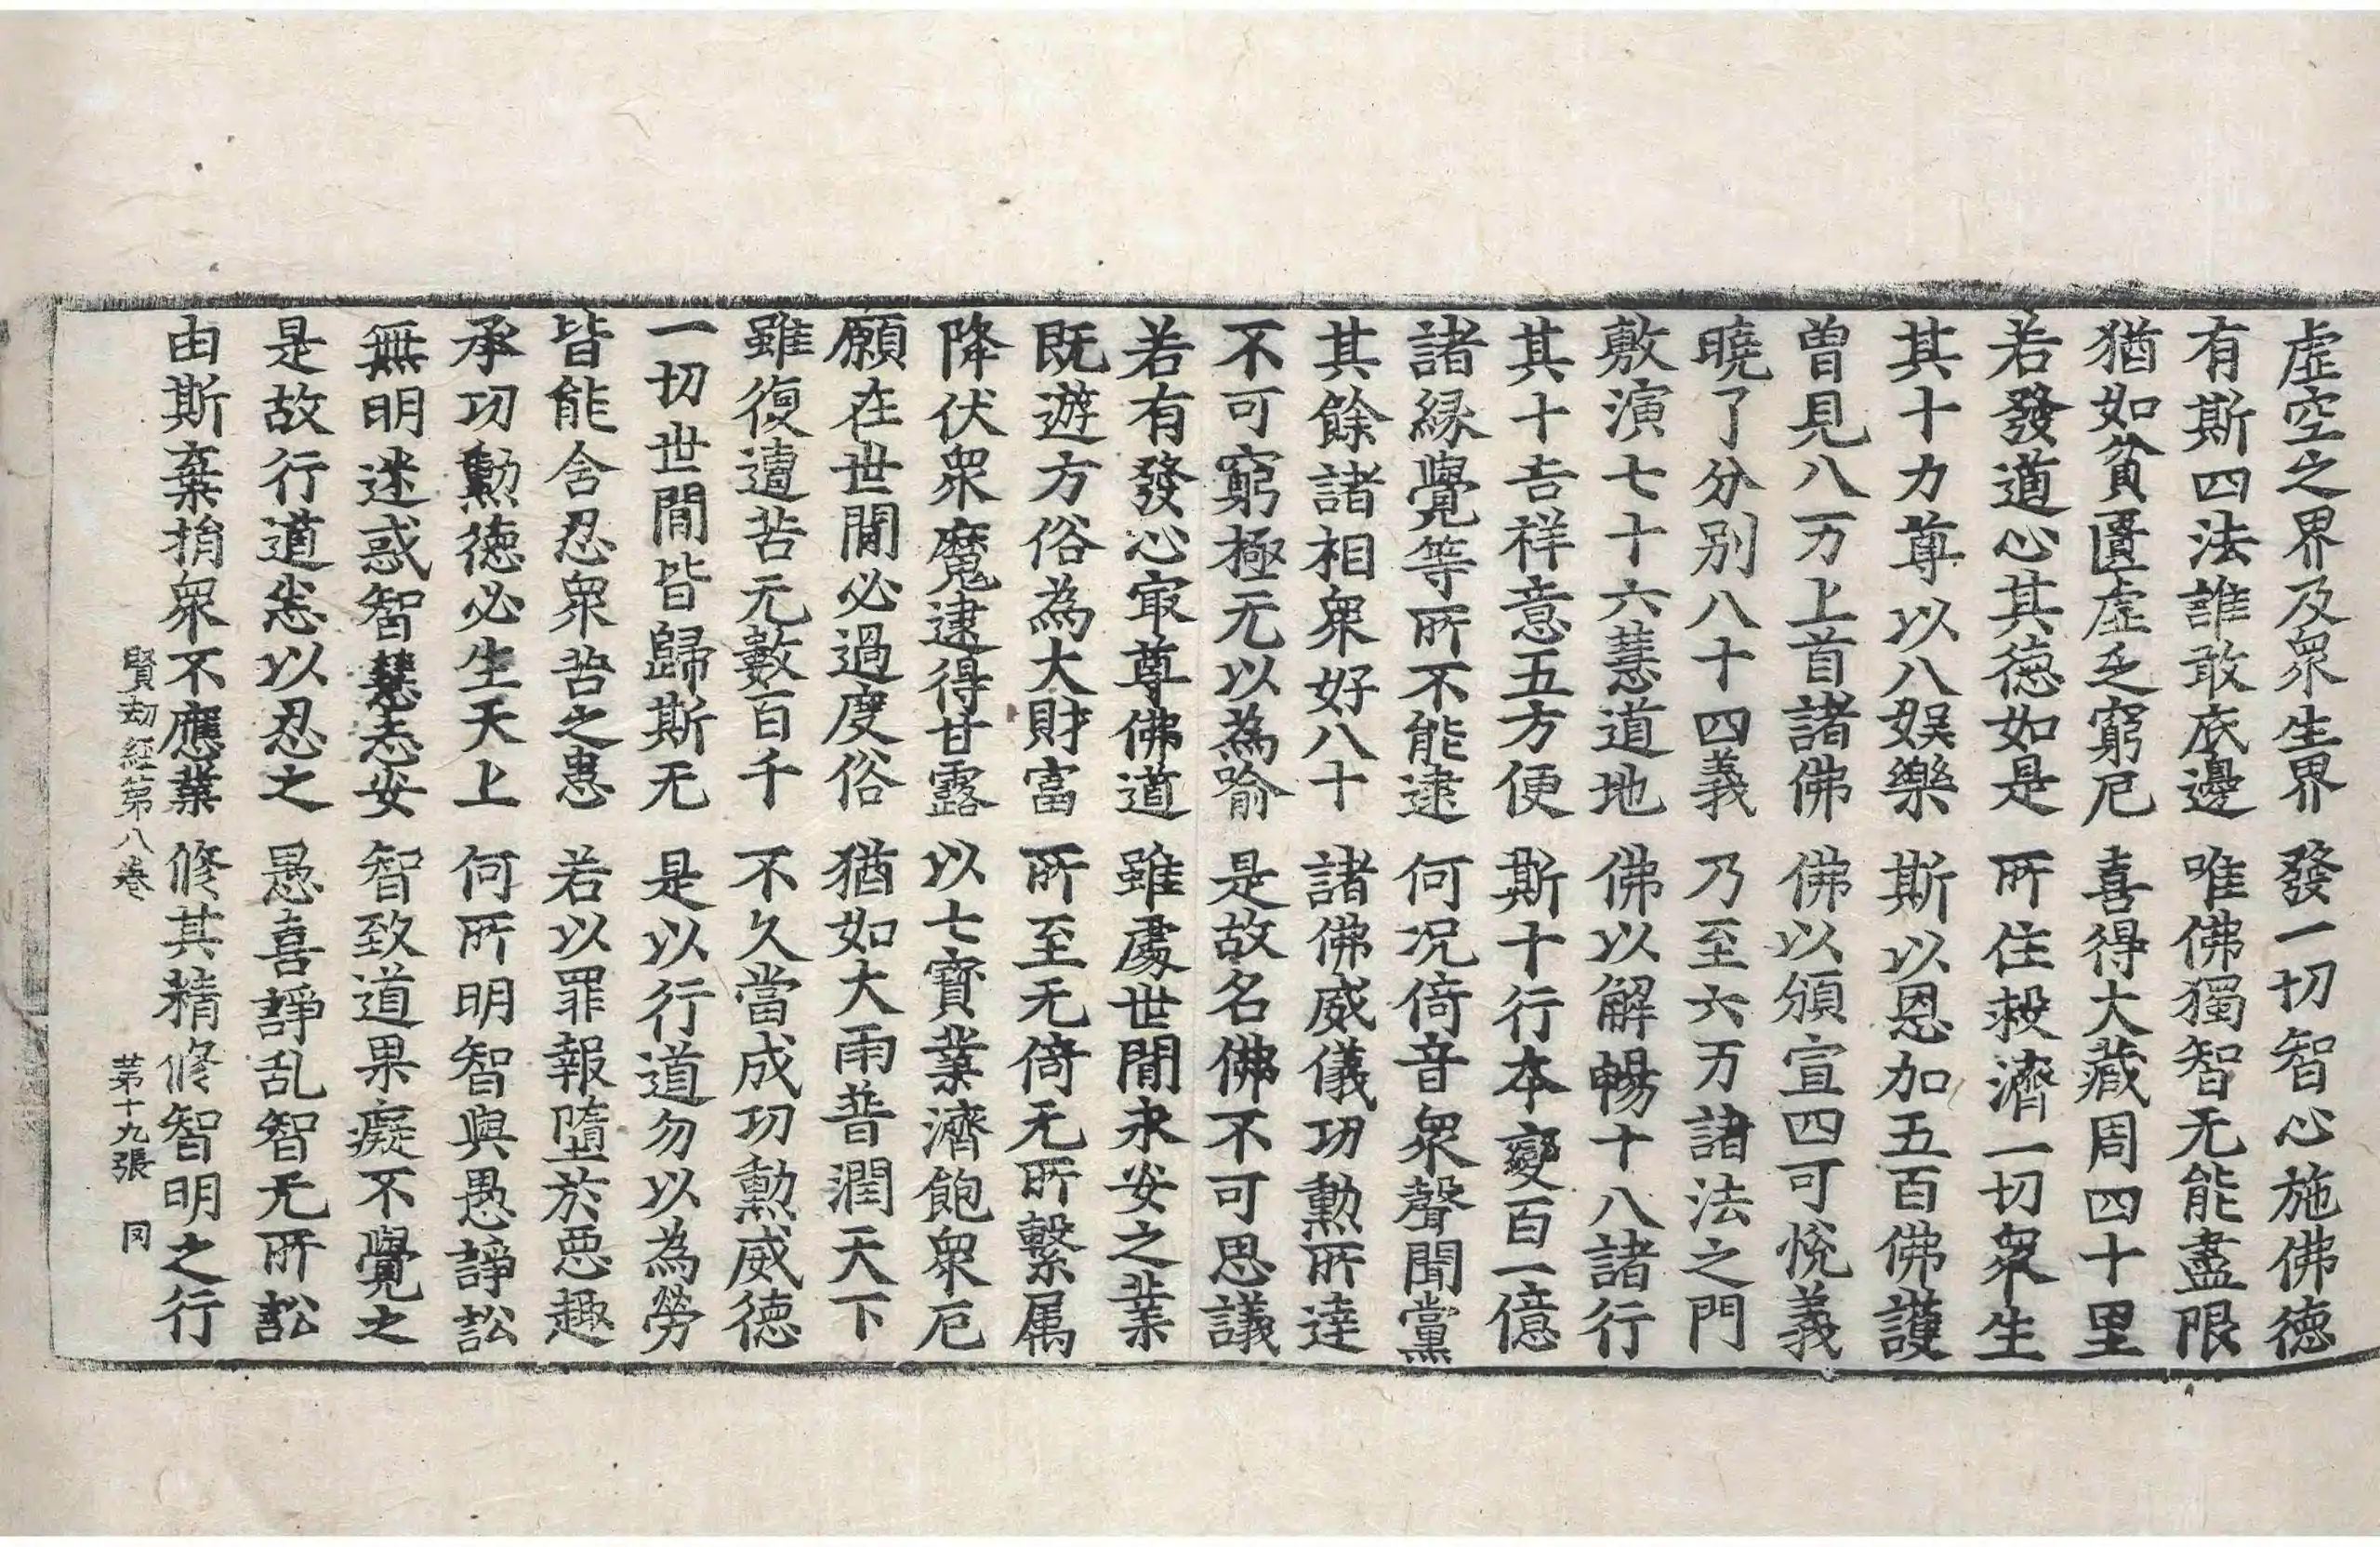 虛空之界及衆生界　發一切智心施佛德
有斯四法誰敢底邊　唯佛獨智无能盡限
猶如貧匱虛乏窮厄　喜得大藏周四十里
若發道心其德如是　所住救濟一切衆生
其十力尊以八娛樂　斯以恩加五百佛護
曽見八万上首諸佛　佛以頒宣四可悅義
曉了分别八十四義　乃至六万諸法之門
敷演七十六慧道地　佛以解暢十八諸行
其十吉祥意五方便　斯十行本變百一億
諸縁覺等所不能逮　何况倚音衆聲聞黨
其餘諸相衆好八十　諸佛威儀功勳所達
不可窮極无以為喻　是故名佛不可思議
若有發心㝡尊佛道　雖處世閒永安之業
既遊方俗為大財富　所至无倚无所繫属
降伏衆魔逮得甘露　以七寶業濟飽衆厄
願在世閒必過度俗　猶如大雨普潤天下
雖復遭苦无數百千　不久當成功勳威德
一切世閒皆歸斯无　是以行道勿以為勞
皆能含忍衆苦之患　若以罪報墮於惡趣
承功勳德必生天上　何所明智與愚諍訟
無明迷惑智慧恚安　智致道果癡不覺之
是故行道恙以忍之　愚喜諍乱智无所訟
由斯棄捐衆不應業　修其精修智明之行
賢劫經第八卷　第十九張　同